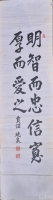 明智而忠信寬
厚而愛人